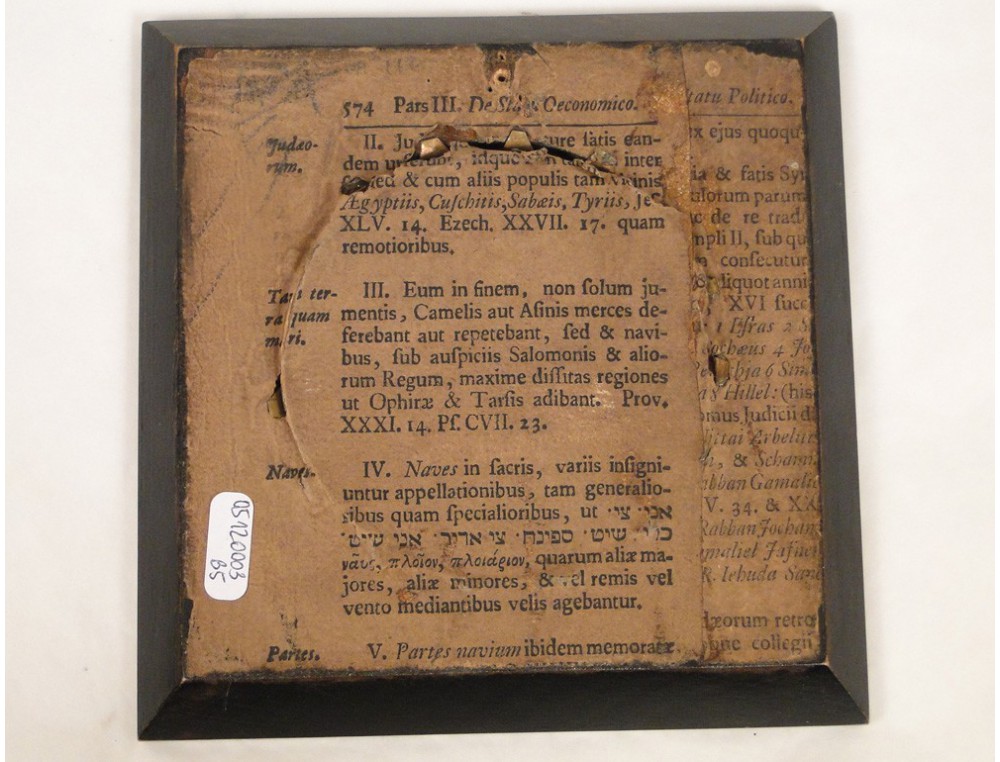 574 Pars III. De Oeconomico.
Judæo-
rum.
II. ſatis ean-
dem inter
& cum aliis populis tam vicinis
Ægyptiis, Cuſchitis, Sabæis, Tyriis, Jeſ.
XLV. 14. Ezech. XXVII. 17. quam
remotioribus.
Tam ter-
ra quam
mari.
III. Eum in finem, non ſolum ju-
mentis, Camelis aut Aſinis merces de-
ferebant aut repetebant, ſed & navi-
bus, ſub auſpiciis Salomonis & alio-
rum Regum, maxime diſſitas regiones
ut Ophiræ & Tarſis adibant. Prov.
XXXI. 14. Pſ. CVII. 23.
Naves.
IV. Naves in ſacris, variis inſigni-
untur appellationibus, tam generalio-
ribus quam ſpecialioribus, ut אני· צי·
כלי· שיט· ספינה· צי אדיר· אני שיט·
ναῦς, πλοῖον, πλοιάριον, quarum aliæ ma-
jores, aliæ minores, & vel remis vel
vento mediantibus velis agebantur.
Partes.
V. Partes navium ibidem memoratæ
tatu Politico.
ex ejus quoqu
& ſatis Sy
alorum parum
de re trad
mpli II, ſub qu
conſecutur
& liquot anni
XVI ſucc
1 Eſras 2 S
ſochæus 4 Jo
6 Sim
Hillel: (his
omus Judicii d
ittai Arbelit
& Scham
abban Gamali
V. 34. & XX
Rabban Jochan
amaliel Jafne
R. Iehuda San
dæorum retro
one collegii
05120003
BS